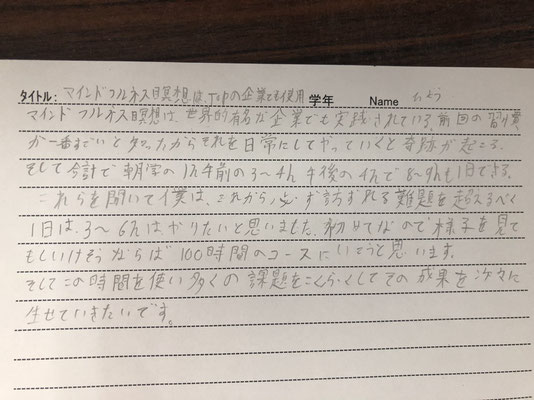 タイトル: マインドフルネス瞑想は、Topの企業でも使用 学年 Name りょう
マインドフルネス瞑想は、世界的有名な企業でも実践されている。前回の習慣
が一番すごいとタッグだからそれを日常にしてやっていくと奇跡が起こる。
そして合計で朝学の1h 午前の3〜4h 午後の4hで8〜9hも1日できる。
これらを聞いて僕は、これから、必ず訪ずれる難題を超えるべく
1日は、3〜6hはやりたいと思いました。初めてなので様子を見て
もしいけそうならば100時間のコースにいこうと思います。
そしてこの時間を使い多くの課題をこくふくしてその成果を次々に
生せていきたいです。